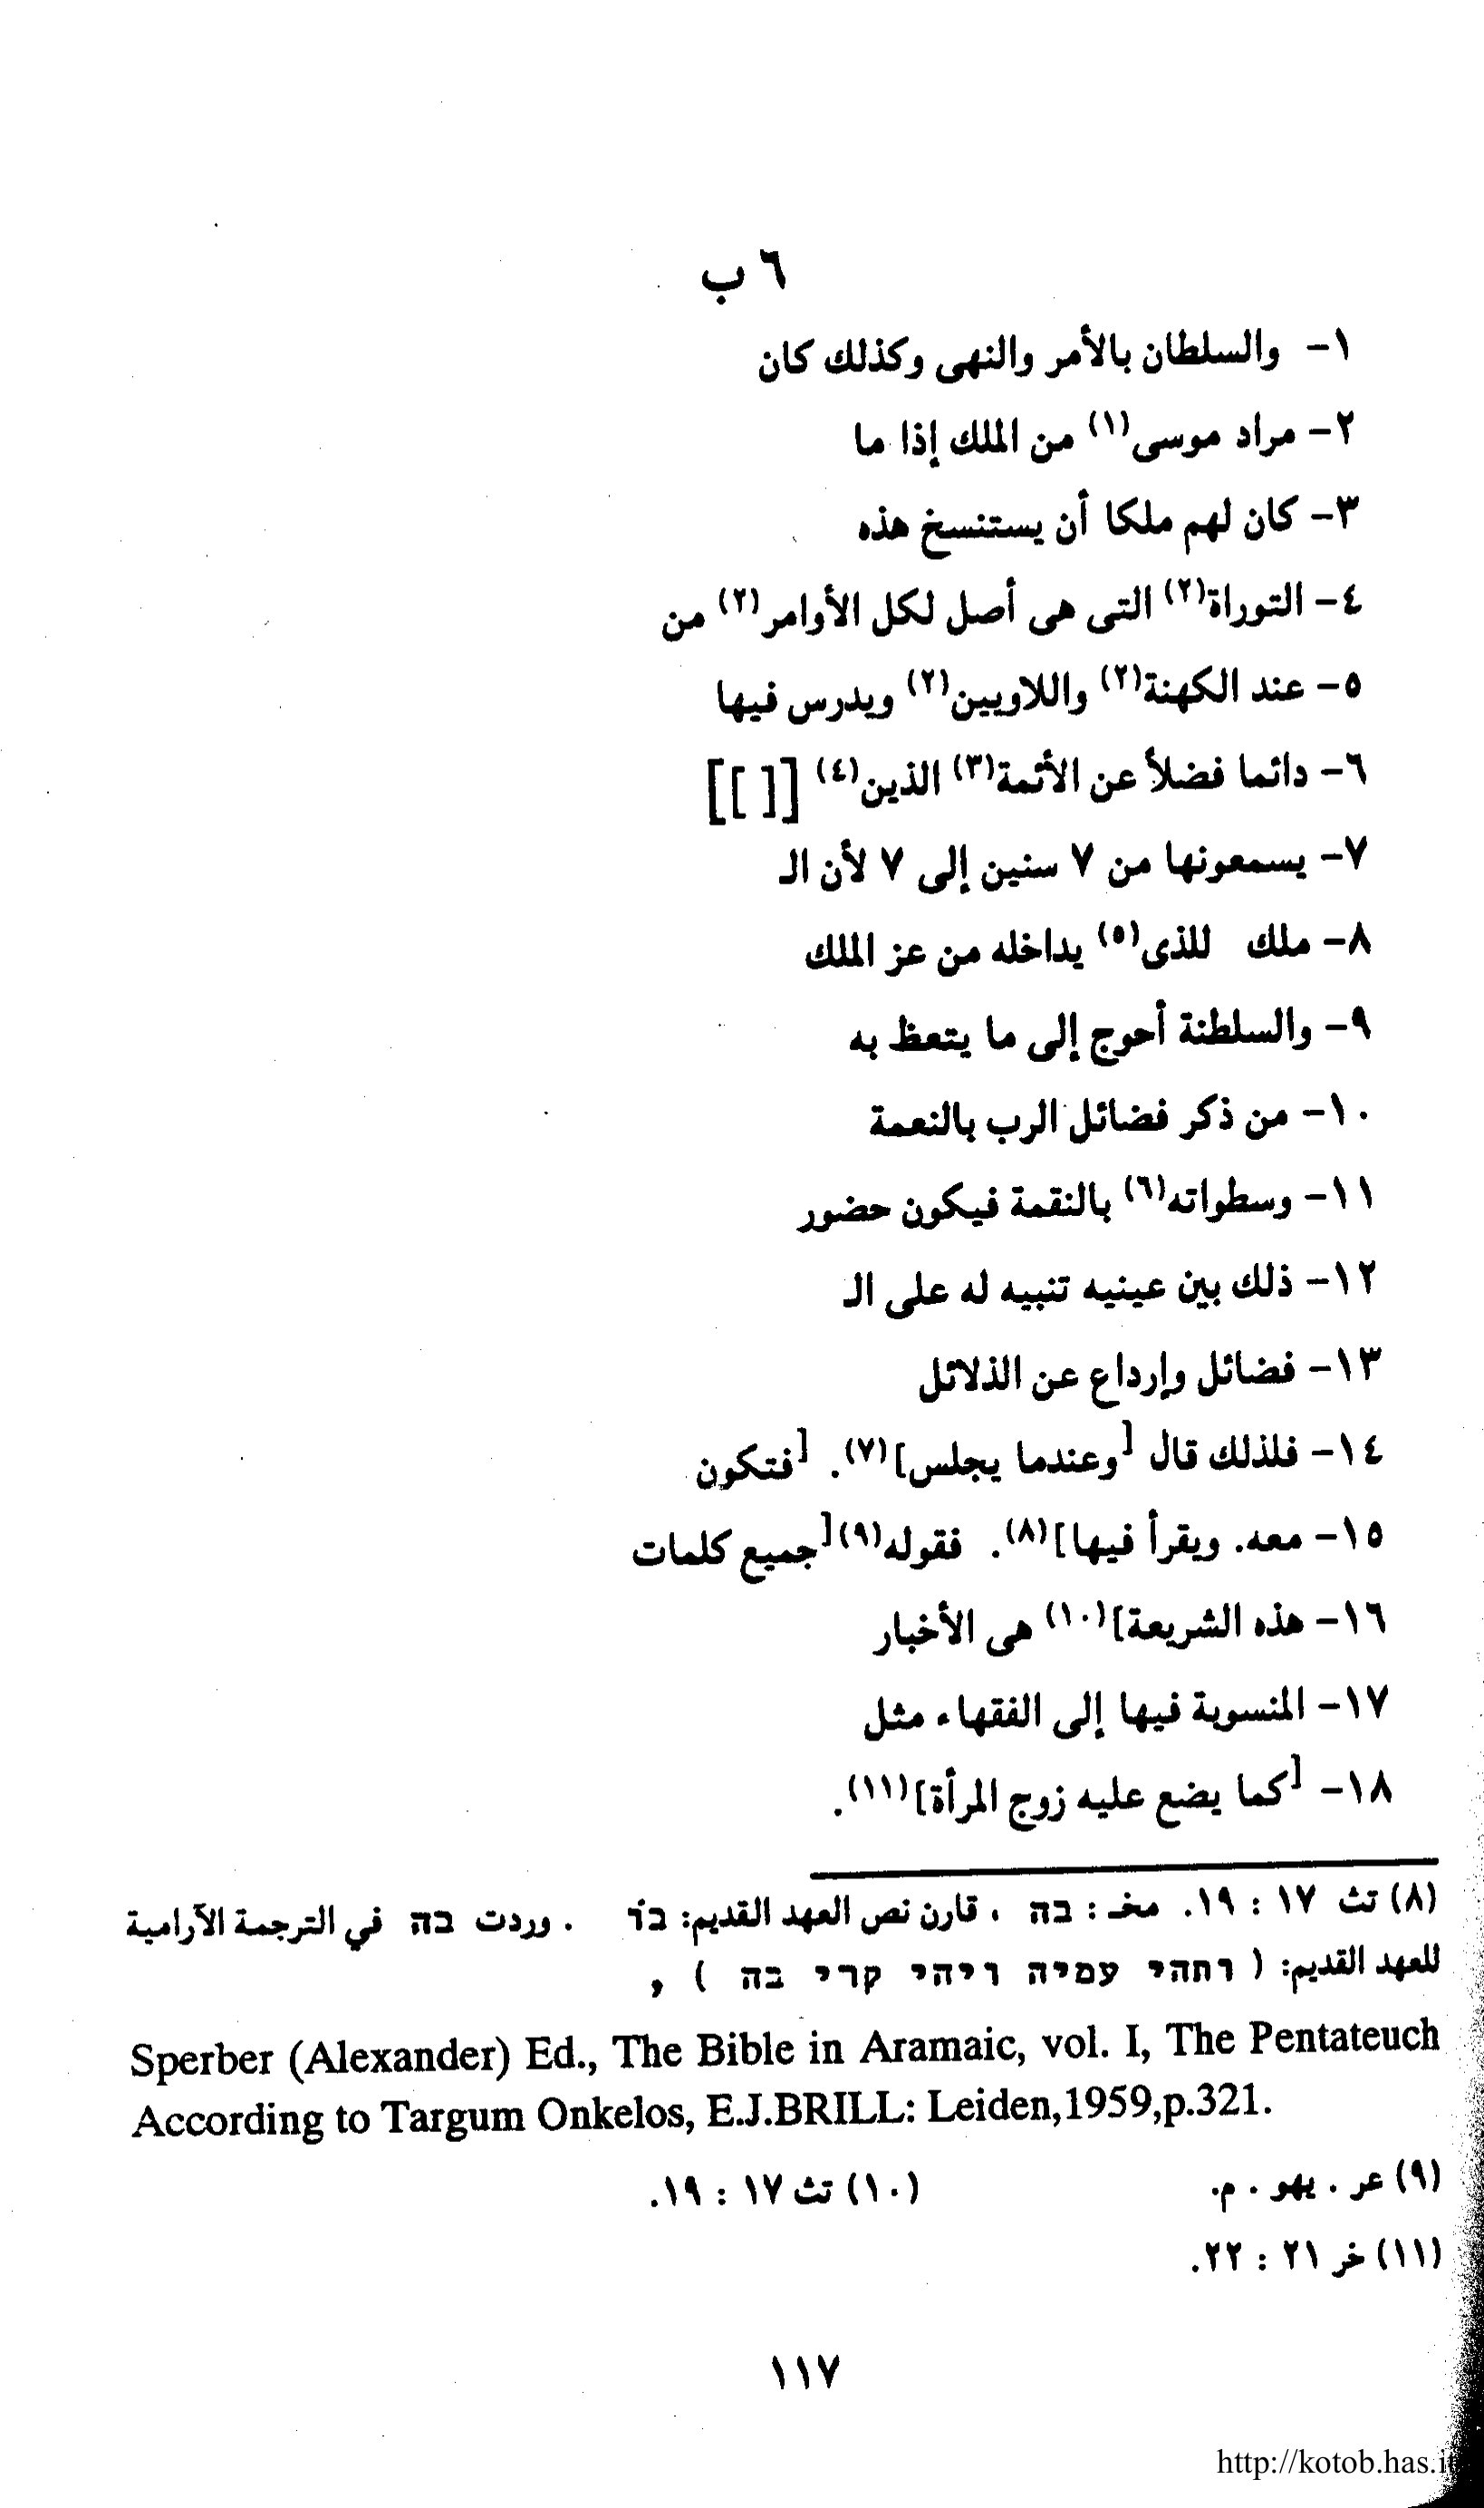 ٦ ب
١- والسلطان بالأمر والنهى وكذلك كان
٢- مراد موسى(١) من الملك إذا ما
٣- كان لهم ملكا أن يستنسخ هذه
٤- التوراة(٢) التى هى أصل لكل الأوامر(٢) من
٥- عند الكهنة(٢) واللاويين(٢) ويدرس فيها
٦- دائما فضلاً عن الأئمة(٣) الذين(٤) [[ ]]
٧- يسمعونها من ٧ سنين إلى ٧ لأن الـ
٨- ملك للذى(٥) يداخله من عز الملك
٩- والسلطنة أحوج إلى ما يتعظ به
١٠- من ذكر فضائل الرب بالنعمة
١١- وسطواته(٦) بالنقمة فيكون حضور
١٢- ذلك بين عينيه تنبيه له على الـ
١٣- فضائل وإرداع عن الذلائل
١٤- فلذلك قال [وعندما يجلس](٧). [فتكون
١٥- معه. ويقرأ فيها](٨). فقوله(٩)[جميع كلمات
١٦- هذه الشريعة](١٠) هى الأخبار
١٧- المنسوبة فيها إلى الفقهاء مثل
١٨- [كما يضع عليه زوج المرأة](١١).
(٨) تث ١٧ : ١٩. مخـ : בה ، قارن نص العهد القديم: בוֹ . وردت בה في الترجمة الآرامية
للعهد القديم: ( ותהי עמיה ויהי קרי בה ) ,
Sperber (Alexander) Ed., The Bible in Aramaic, vol. I, The Pentateuch
According to Targum Onkelos, E.J.BRILL: Leiden,1959,p.321.
(٩) عر . يهو . م. (١٠) تث ١٧ : ١٩.
(١١) خر ٢١ : ٢٢.
١١٧
http://kotob.has.i